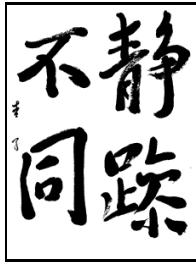 静躁
不同